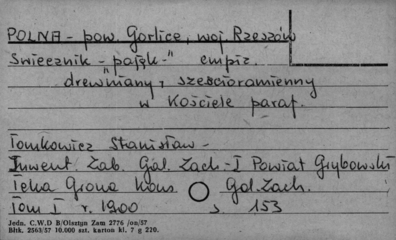 POLNA - pow. Gorlice, woj. Rzeszów
Świecznik - "pająk" - empir.
drewniany, sześcioramienny
w Kościele paraf.
Tomkowicz Stanisław -
Inwent. Zab. Gal. Zach. - I Powiat Grybowski
Teka Grona Kons. Gal. Zach.
Tom I r. 1900 s. 153
Jedn. C.W.D B/Olsztyn Zam 2776 /on/57
Błtk. 2563/57 10.000 szt. karton kl. 7 g 220.